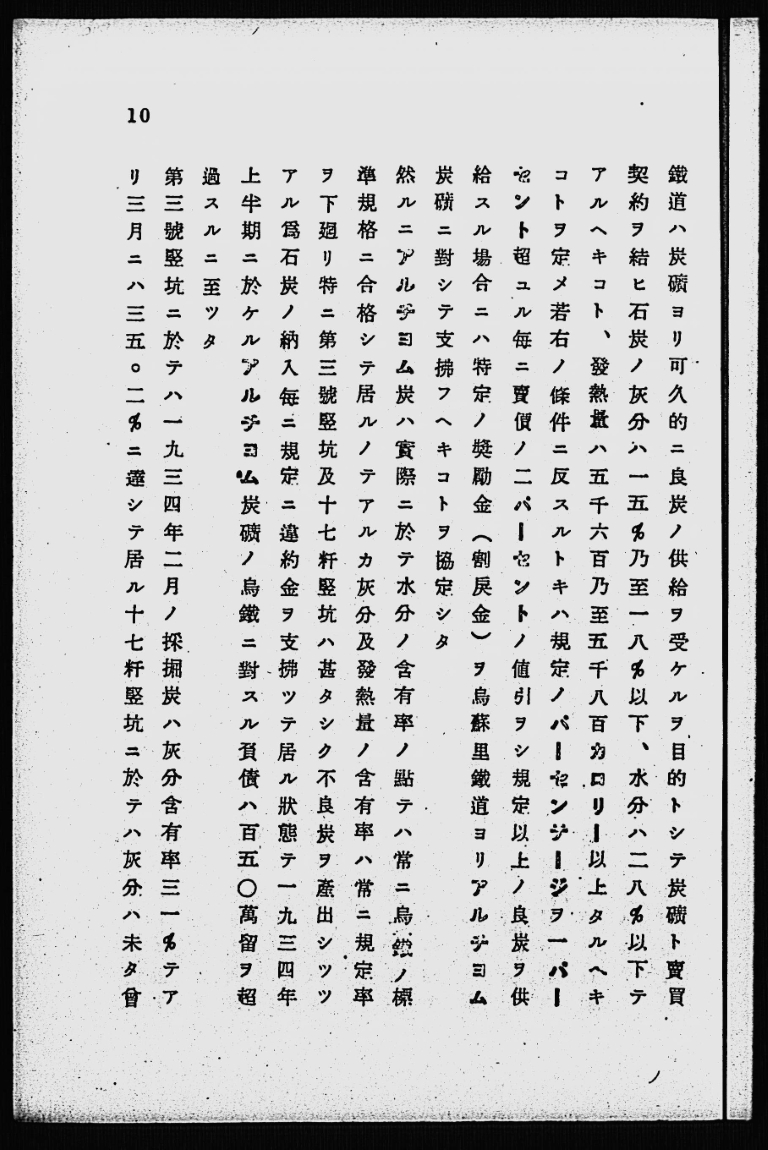 10
鐵道ハ炭礦ヨリ可久的ニ良炭ノ供給ヲ受ケルヲ目的トシテ炭礦ト賣買
契約ヲ結ヒ石炭ノ灰分ハ一五%乃至一八%以下、水分ハ二八%以下テ
アルヘキコト、發熱量ハ五千六百乃至五千八百カロリー以上タルヘキ
コトヲ定メ若右ノ條件ニ反スルトキハ規定ノパーセンテージヲ一パー
セント超ユル每ニ賣價ノ二パーセントノ値引ヲシ規定以上ノ良炭ヲ供
給スル場合ニハ特定ノ奬勵金(割戾金)ヲ烏蘇里鐵道ヨリアルチヨム
炭礦ニ對シテ支拂フヘキコトヲ協定シタ
然ルニアルチヨム炭ハ實際ニ於テ水分ノ含有率ノ點テハ常ニ烏鐵ノ標
準規格ニ合格シテ居ルノテアルカ灰分及發熱量ノ含有率ハ常ニ規定率
ヲ下廻リ特ニ第三號竪坑及十七粁竪坑ハ甚タシク不良炭ヲ產出シツツ
アル爲石炭ノ納入每ニ規定ニ違約金ヲ支拂ツテ居ル狀態テ一九三四年
上半期ニ於ケルアルチヨム炭礦ノ烏鐵ニ對スル負債ハ百五〇萬留ヲ超
過スルニ至ツタ
第三號竪坑ニ於テハ一九三四年二月ノ採掘炭ハ灰分含有率三一%テア
リ三月ニハ三五。二%ニ達シテ居ル十七粁竪坑ニ於テハ灰分ハ未タ曾